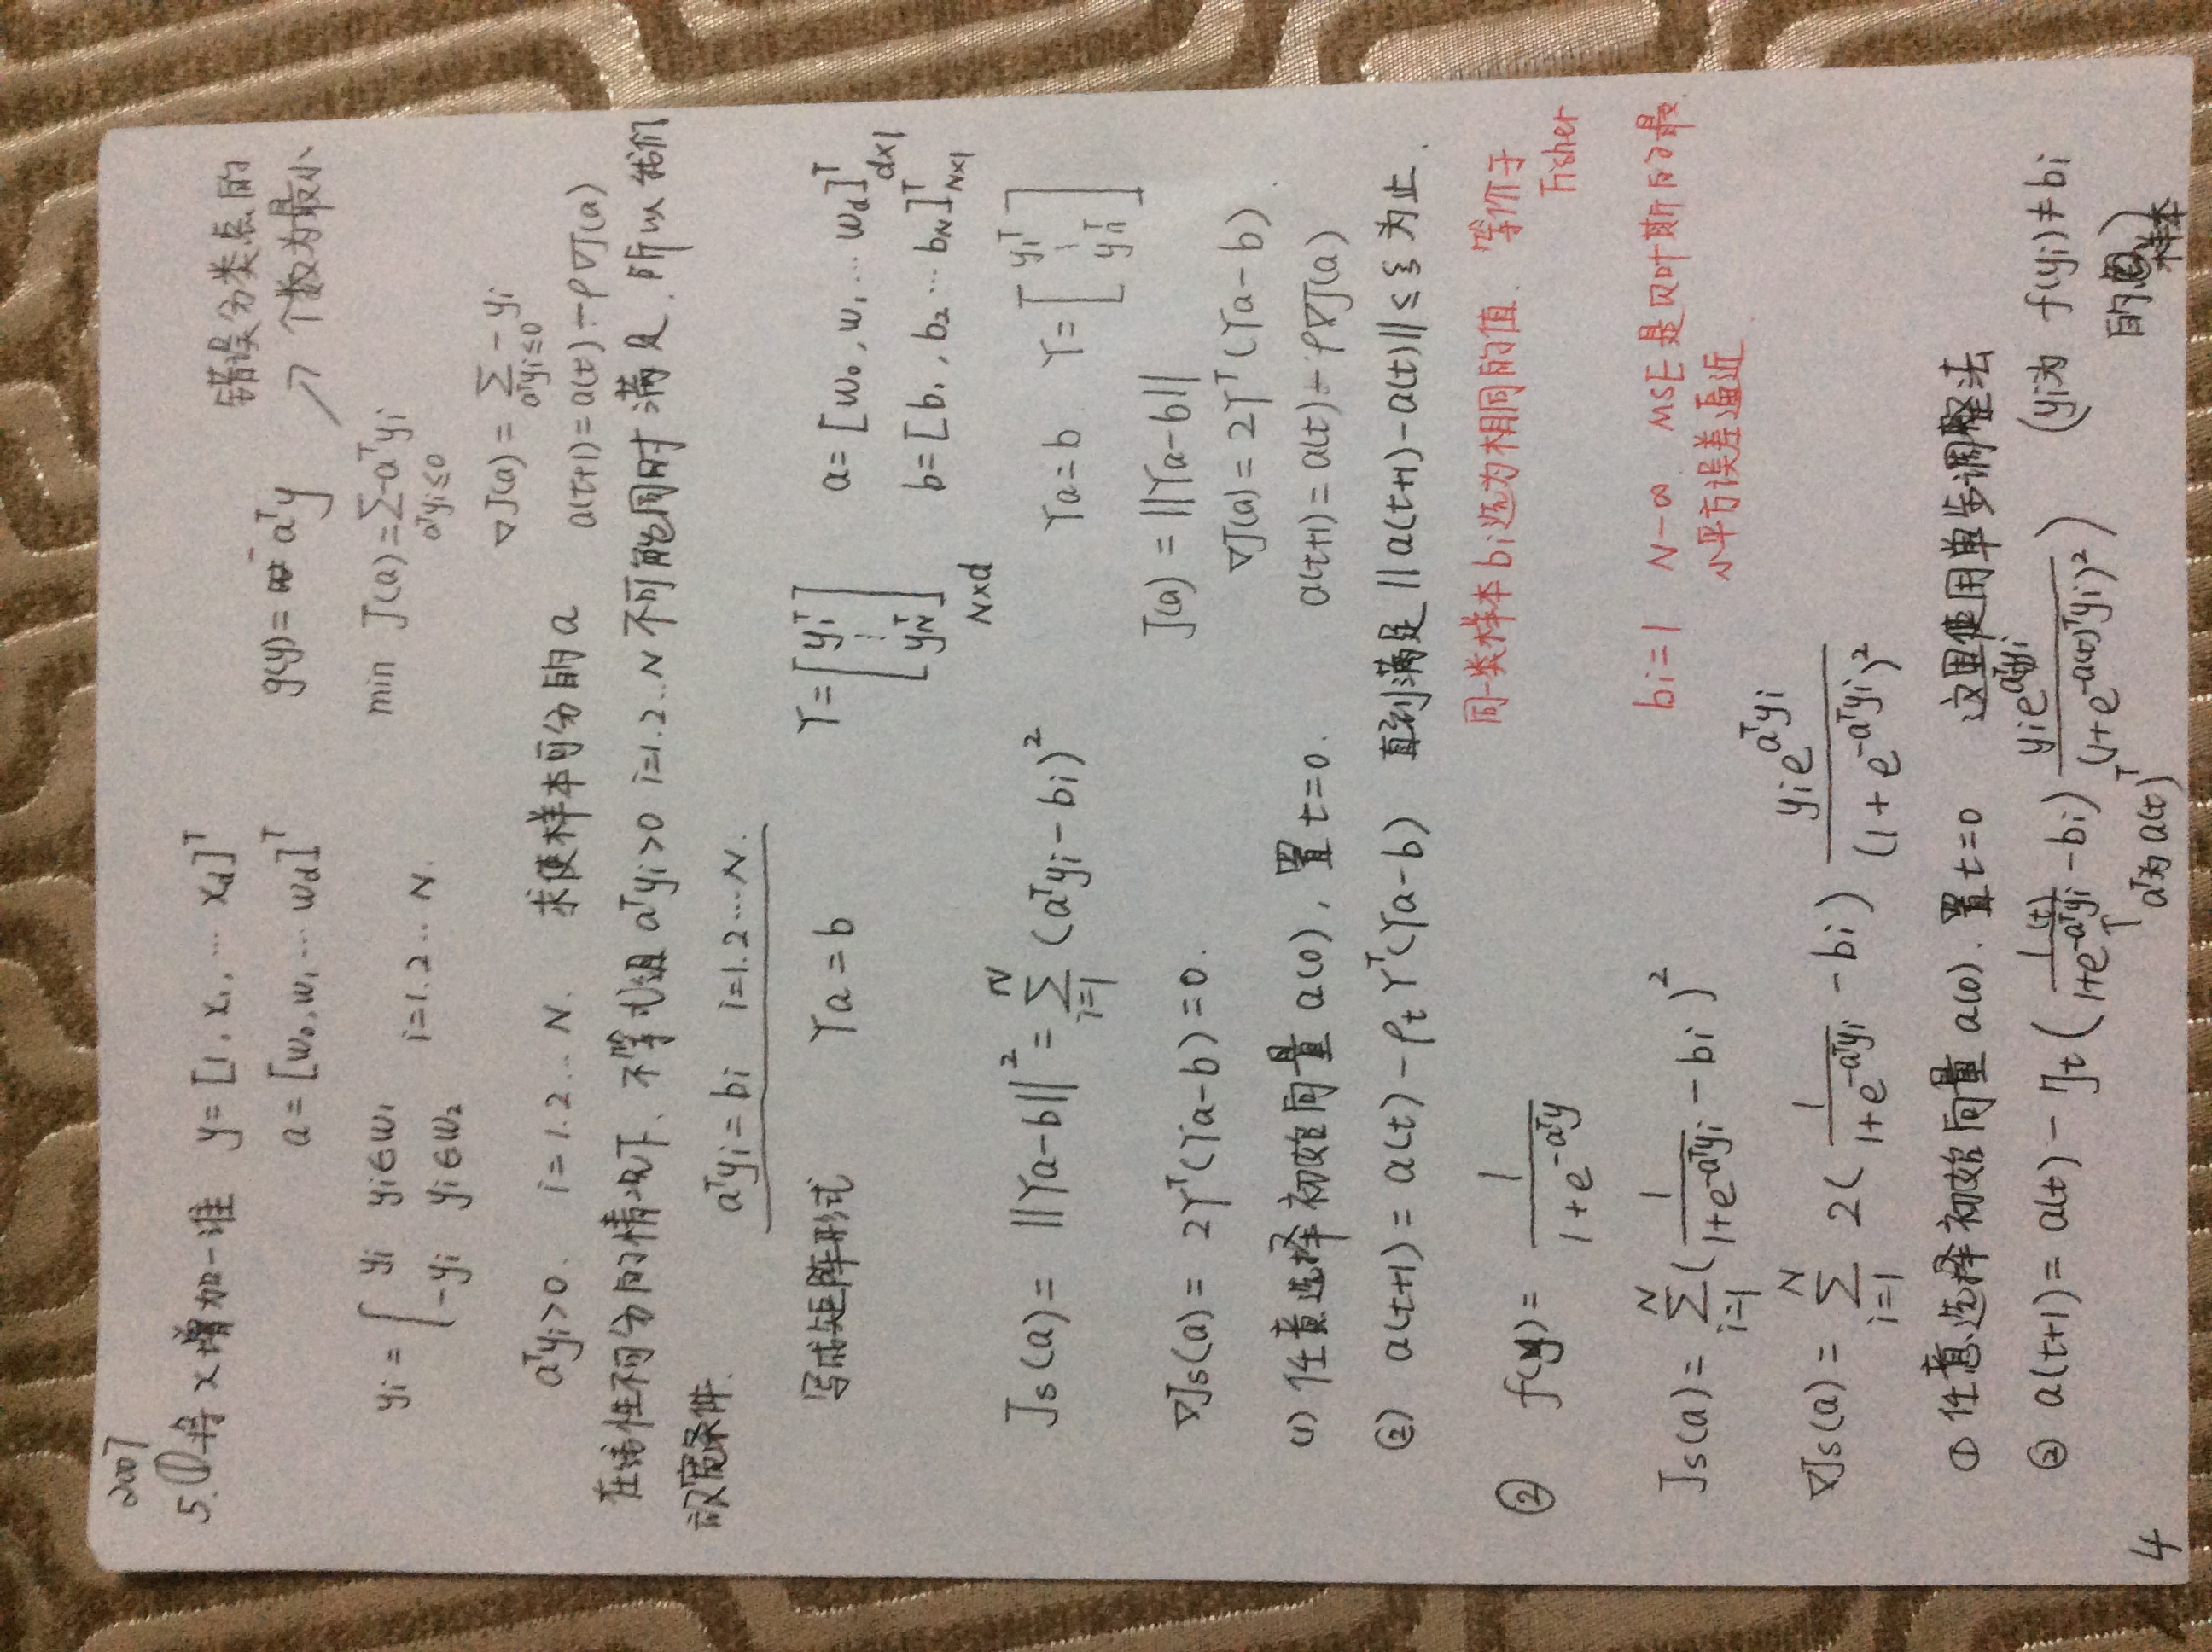 2007
5. ① 将 x 增加一维 y = [1, x₁, … x_d]ᵀ
a = [w₀, w₁, … w_d]ᵀ g(y) = aᵀy
错误分类点的
个数为最小
yᵢ = { yᵢ yᵢ∈w₁
-yᵢ yᵢ∈w₂ i=1.2… N.
min J(a) = Σ -aᵀyᵢ
aᵀyᵢ≤0
∇J(a) = Σ -yᵢ
aᵀyᵢ≤0
aᵀyᵢ>0. i=1.2… N. 求使样本可分的 a a(t+1) = a(t) - ρ∇J(a)
在线性不可分的情况下. 不等式组 aᵀyᵢ>0 i=1.2…N 不可能同时满足. 所以我们
放宽条件.
aᵀyᵢ = bᵢ i=1.2…N.
写成矩阵形式 Ya = b Y = [y₁ᵀ ⋮ y_Nᵀ] N×d a = [w₀, w₁ … w_d]ᵀ d×1
b = [b₁, b₂ … b_N]ᵀ N×1
Js(a) = ||Ya-b||² = Σ_{i=1}^{N} (aᵀyᵢ - bᵢ)² Ya = b Y = [y₁ᵀ ⋮ yₙᵀ]
J(a) = ||Ya-b||
∇Js(a) = 2Yᵀ(Ya-b) = 0. ∇J(a) = 2Yᵀ(Ya-b)
(1) 任意选择初始向量 a(0), 置 t=0. a(t+1) = a(t) - ρ∇J(a)
(2) a(t+1) = a(t) - ρₜYᵀ(Ya-b) 直到满足 ||a(t+1)-a(t)|| ≤ ξ 为止.
② f(y) = 1/(1+e^{-aᵀy})
同一类样本 bᵢ 选为相同的值. 等价于
Fisher
Js(a) = Σ_{i=1}^{N} (1/(1+e^{-aᵀyᵢ}) - bᵢ)²
bᵢ=1 N-∞ MSE 是贝叶斯的最
小平方误差逼近
∇Js(a) = Σ_{i=1}^{N} 2(1/(1+e^{-aᵀyᵢ}) - bᵢ) yᵢe^{aᵀyᵢ}/(1+e^{-aᵀyᵢ})²
① 任意选择初始向量 a(0). 置 t=0 这里使用单步调整法
② a(t+1) = a(t) - ηₜ(1/(1+e^{-a(t)ᵀyᵢ}) - bᵢ) yᵢe^{aᵀyᵢ}/(1+e^{-a(t)ᵀyᵢ})²) (yᵢ为 f(yᵢ)≠bᵢ
a为 a(t)ᵀ
的样本)
4